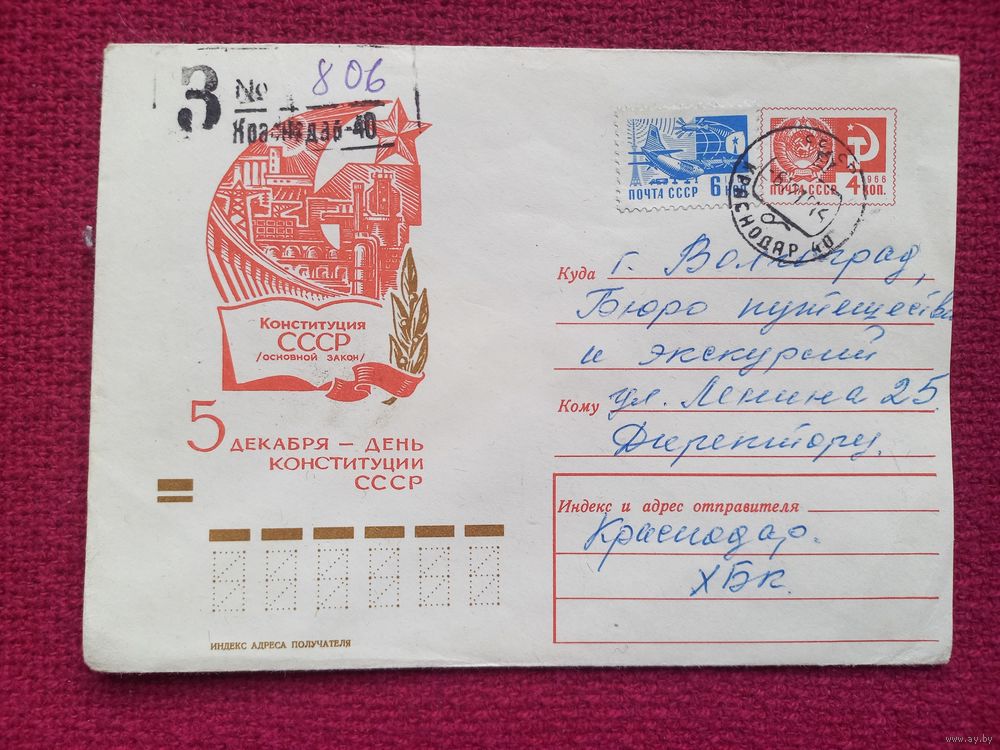 З № 806
Краснодар-40
6 КОП
ПОЧТА СССР
1966
4 КОП.
ПОЧТА СССР
СССР
КРАСНОДАР 40
Конституция
СССР
/ОСНОВНОЙ ЗАКОН/
5 ДЕКАБРЯ — ДЕНЬ
КОНСТИТУЦИИ
СССР
Куда г. Волгоград,
Бюро путешестви
и экскурсий
Кому ул. Ленина 25.
Директору.
Индекс и адрес отправителя
Краснодар.
ХБК.
ИНДЕКС АДРЕСА ПОЛУЧАТЕЛЯ
www.ay.by